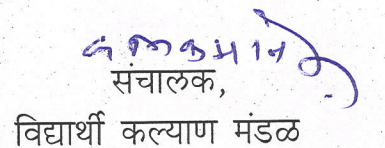 संचालक,
विद्यार्थी कल्याण मंडळ